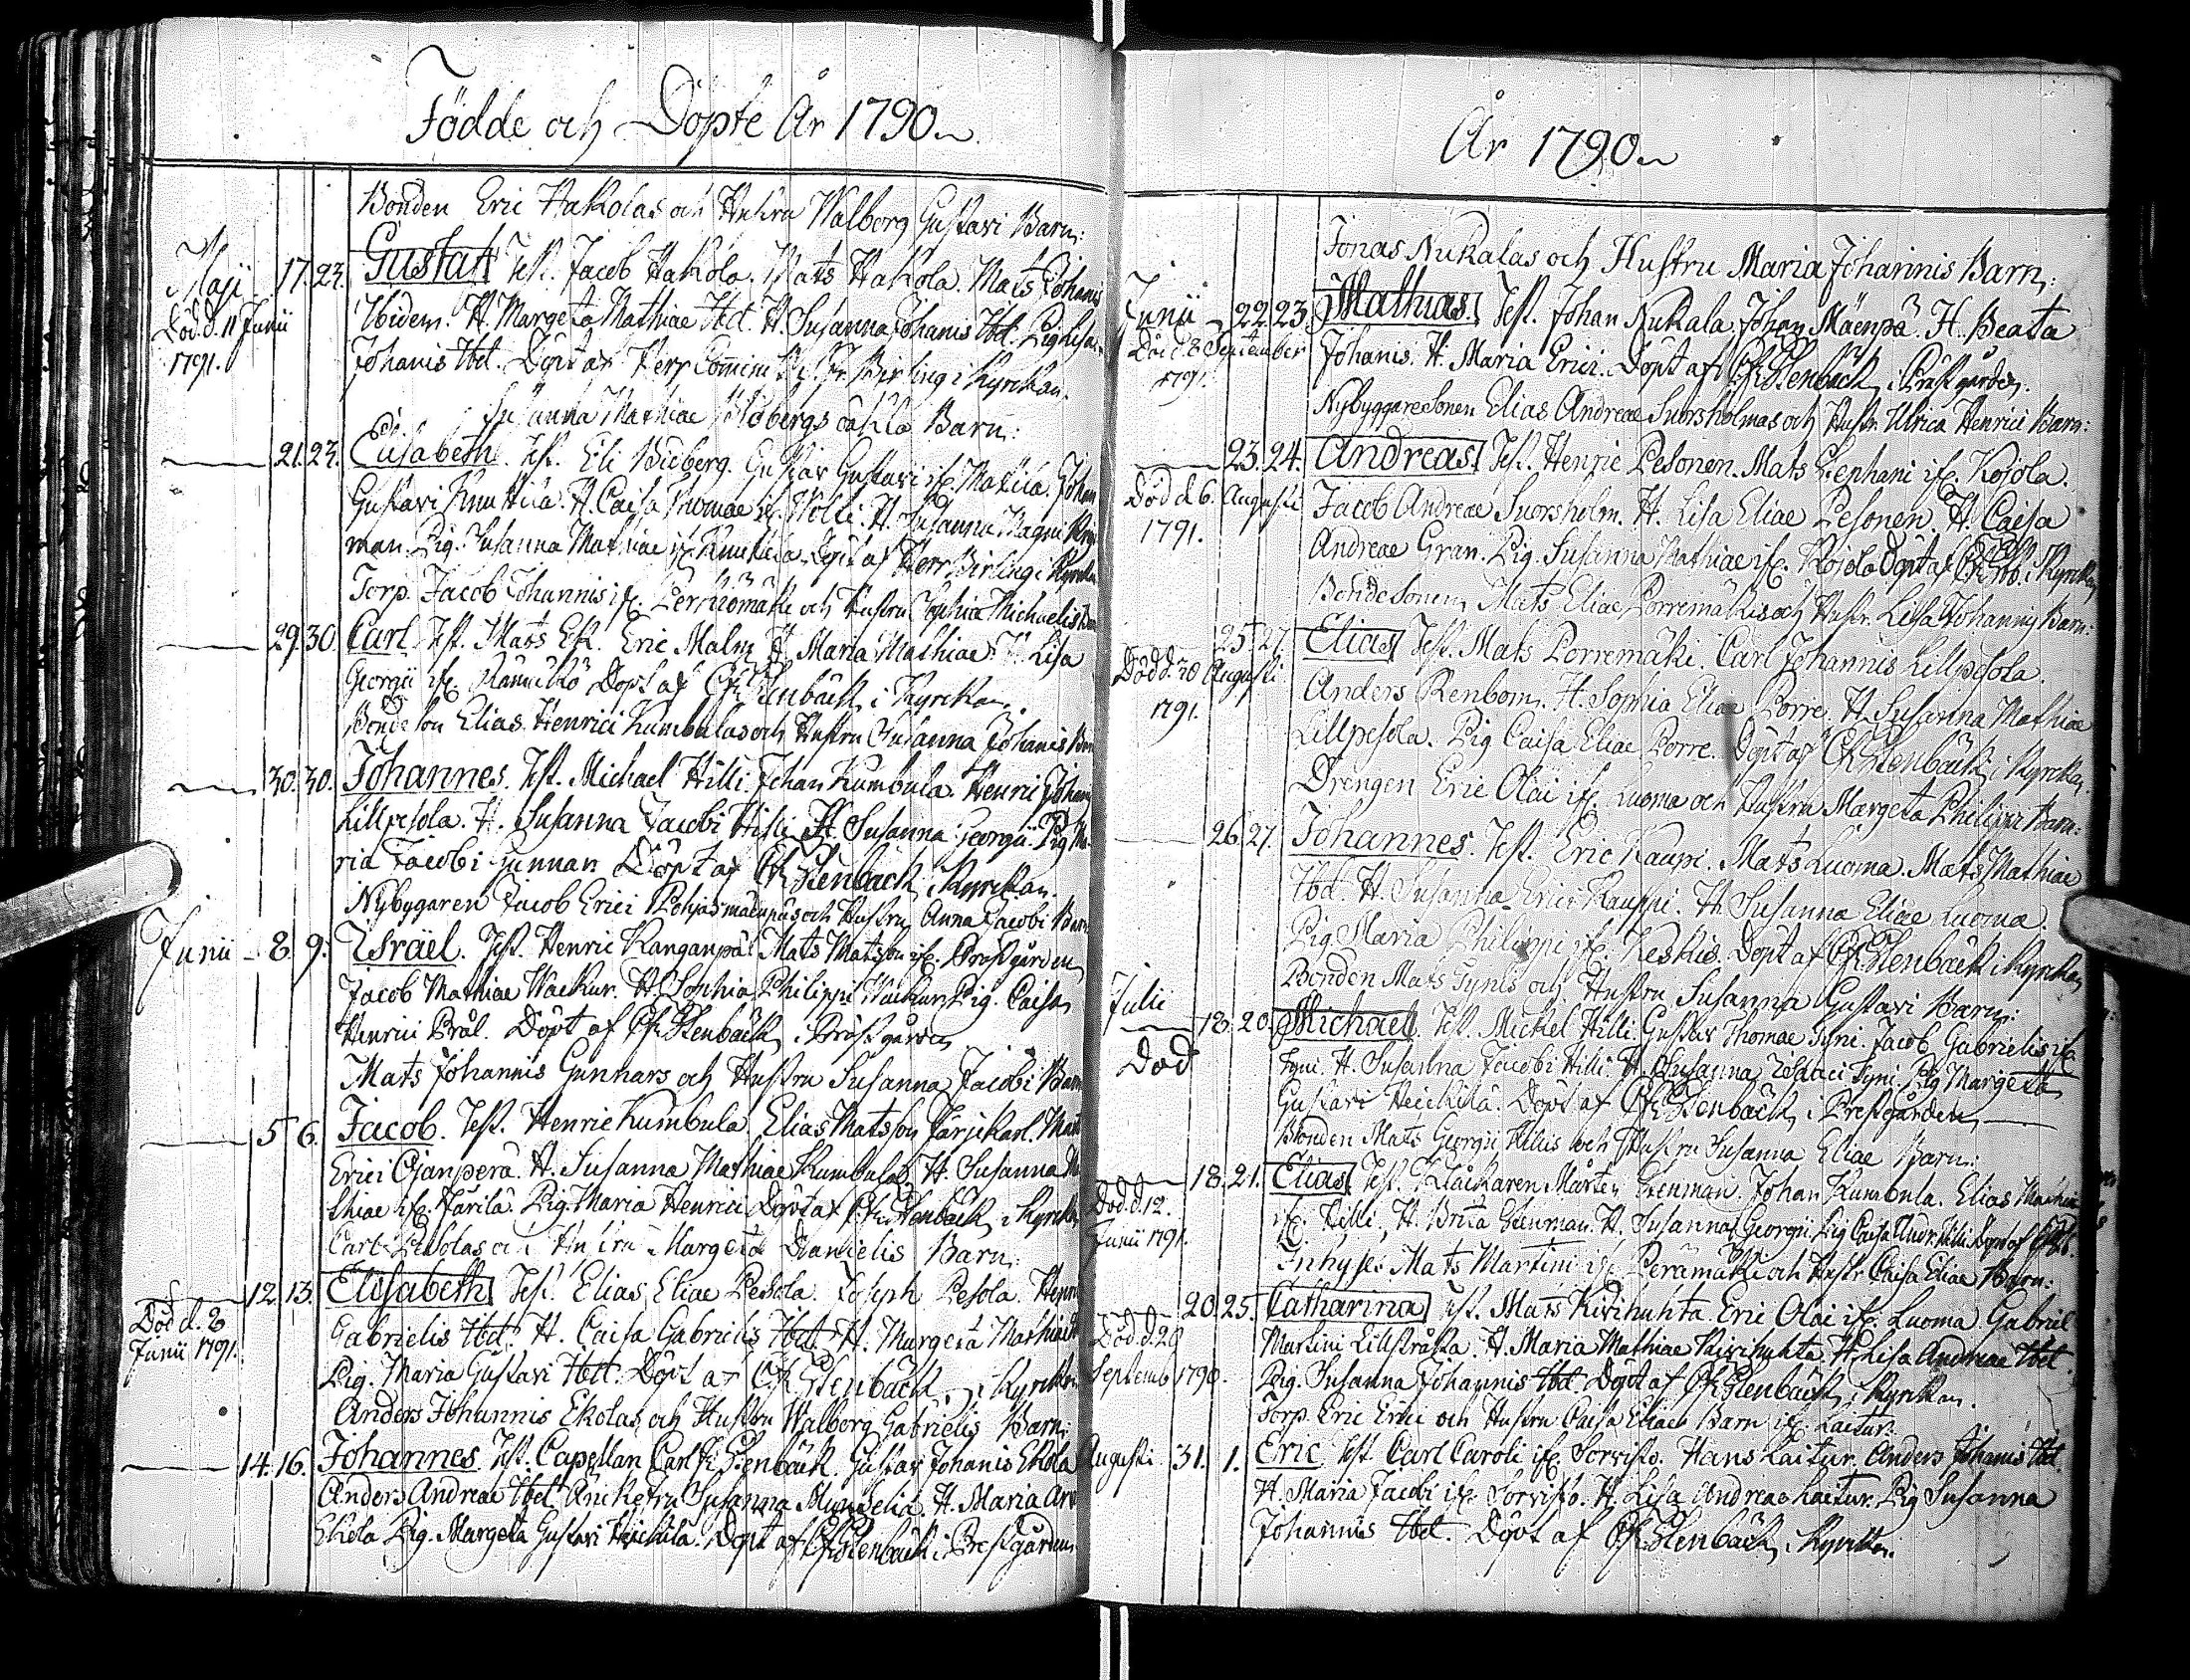 Födde och Döpte År 1790.
Bonden Eric Hakolas och Hustru Walborg Gustavi Barn:
Maji 17. 23. Gustaf. Test. Jacob Hakola. Mats Hakola. Mats Johanis
Död d. 11 Junii Ibidem. H. Margeta Mathiae Ibd. H. Susanna Johanis Ibd. Pig
1791. Johanis Ibd. Döpt af Herr Birling i Kyrckan.
Susanna Mathiae Barn:
21. 23. Elisabeth. Test. Eli Wieberg. Gustav Gustavi Johan
Gustavi Knuttila. H. Caisa Thomae H. Susanna Magni
man. Pig. Susanna Mathiae Knuttila. Döpt af Herr Birling i Kyrckan
Torp. Jacob Johannis och Hustru Sophia Michaelis
29. 30. Carl. Test. Mats Ek. Eric Malm. H. Maria Mathiae. H. Lisa
Georgii Döpt af Stenbäck i Kyrckan.
Bonde Son Elias Henrici Kumbulas och Hustru Susanna Johanis
30. 30. Johannes. Test. Michael Hilli. Johan Kumbula. Henric Johan
Lillpesola. H. Susanna Jacobi Hilli. H. Susanna Georgii. Pig. Ma-
ria Jacobi Gunnar. Döpt af Stenbäck i Kyrckan.
Nybygaren Jacob Erici och Hustru Anna Jacobi Barn
Junii 8. 9. Israël. Test. Henric Mats Matsson Prästgården
Jacob Mathiae Wackur. H. Sophia Philippi Wackur. Pig. Caisa
Henrici Prål. Döpt af Stenbäck i Prästgården
Mats Johannis Gunnars och Hustru Susanna Jacobi Barn
5 6. Jacob. Test. Henric Kumbula. Elias Matsson Färjekarl. Mats
Erici Ojanperä. H. Susanna Mathiae Kumbula. H. Susanna Ma-
thiae Pig. Maria Henrici. Döpt af Stenbäck i Kyrckan
Carl Pesolas och Hustru Margeta Danielis Barn:
12. 13. Elisabeth. Test. Elias Eliae Pesola. Joseph Pesola. Henric
Död d. 2 Gabrielis Ibd. H. Caisa Gabrielis Ibd. H. Margeta Mathiae
Junii 1791. Pig. Maria Gustavi Ibd. Döpt af Stenbäck i Kyrckan
Anders Johannis Ekolas och Hustru Walborg Gabrielis Barn:
14. 16. Johannes. Test. Capellan Carl Fr. Stenbäck. Gustav Johanis Ekola
Anders Andreae Ibd. Susanna H. Maria
Ekola. Pig. Margeta Gustavi Heickilä. Döpt af Stenbäck i Prestgården
År 1790.
Jonas Nukalas och Hustru Maria Johannis Barn:
Junii 22. 23. Mathias. Test. Johan Nukala. Johan Mäenpä. H. Beata
Död d. 8 September Johanis. H. Maria Erici. Döpt af Stenbäck i Prästgården.
1791. Nybyggare Sonen Elias Andreae Suorsholmas och Hustr. Ulrica Henrici Barn:
23. 24. Andreas. Test. Henric Pesonen. Mats Stephani Kojola.
Död d. 6. Augusti Jacob Andreae Suorsholm. H. Lisa Eliae Pesonen. H. Caisa
1791. Andreae Gran. Pig. Susanna Mathiae Kojola. Döpt af i Kyrckan
Bonde Sonen Mats Eliae Porremäkis och Hustr. Lisa Johannis Barn:
25. 27. Elias. Test. Mats Porremäki. Carl Johannis Lillpesola.
Död d. 30 Augusti Anders Renbom. H. Sophia Eliae Porre. H. Susanna Mathiae
1791. Lillpesola. Pig Caisa Eliae Porre. Döpt af Stenbäck i Kyrckan
Drengen Eric Olai Luoma och Hustru Margeta Philippi Barn:
26. 27. Johannes. Test. Eric Kauppi. Mats Luoma. Mats Mathiae
Ibd. H. Susanna Erici Kauppi. H. Susanna Eliae Luoma.
Pig. Maria Philippi Keskis. Döpt af Stenbäck i Kyrckan
Bonden Mats Tynis och Hustru Susanna Gustavi Barn:
Julii 18. 20. Michael. Test. Mickel Hilli. Gustav Thomae Tyni. Jacob Gabrielis
Död Tyni. H. Susanna Jacobi Hilli. H. Susanna Isaaci Tyni. Pig Margeta
Gustavi Heickilä. Döpt af Stenbäck i Prestgården
Bonden Mats Georgii Hillis och Hustru Susanna Eliae Barn:
18. 21. Elias. Test. Klåckaren Mårten Stenman. Johan Kumbula. Elias
Död. d. 12. Hilli. H. Brita Stenman. H. Susanna Georgii. Pig Caisa Andr. Hilli. Döpt af
Junii 1791. Inhyses Mats Martini Perämäki och Hustr. Caisa Eliae Barn:
20. 25. Catharina. Test. Mats Kivihuhta. Eric Olai Luoma. Gabriel
Död. d. 28 Martini H. Maria Mathiae Kivihuhta. H. Lisa Andreae Ibd.
Septemb 1790. Pig. Susanna Johannis Ibd. Döpt af Stenbäck i Kyrckan.
Torp. Eric Erici och Hustru Caisa Eliae Barn Laitur.
Augusti 31. 1. Eric. Test. Carl Caroli Sorvisto. Hans Laitur. Anders Johanis Ibd.
H. Maria Jacobi Sorvisto. H. Lisa Andreae Laitur. Pig Susanna
Johannis Ibd. Döpt af Stenbäck i Kyrckan.